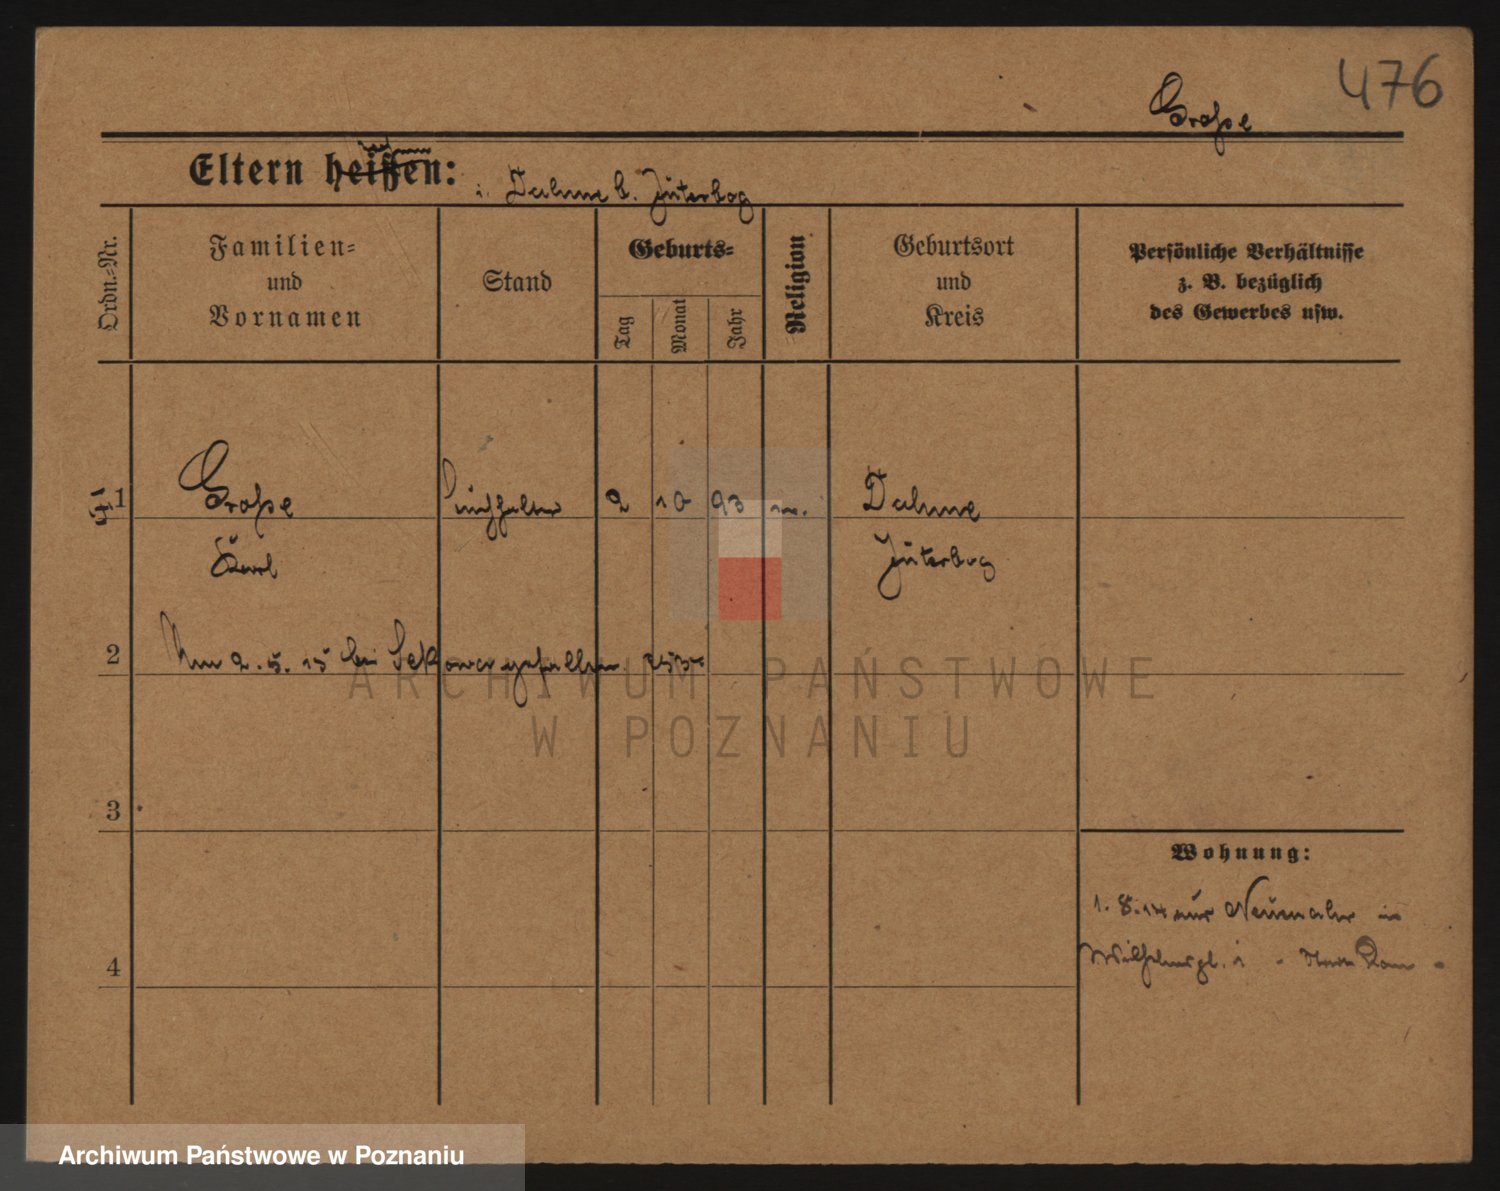 476
Große
Eltern heißen:
i. Dahme b. Jüterbog
Ordn.-Nr.
Familien-
und
Vornamen
Stand
Geburts-
Tag
Monat
Jahr
Religion
Geburtsort
und
Kreis
Persönliche Verhältnisse
z. B. bezüglich
des Gewerbes usw.
1 Große Buchhalter 2 10 93 Dahme
Karl Jüterbog
2 Am 2.5.15 bei gefallen
ARCHIWUM PAŃSTWOWE
W POZNANIU
3
Wohnung:
1.8.14 aus in
4 Wilhelmspl. 1
Archiwum Państwowe w Poznaniu